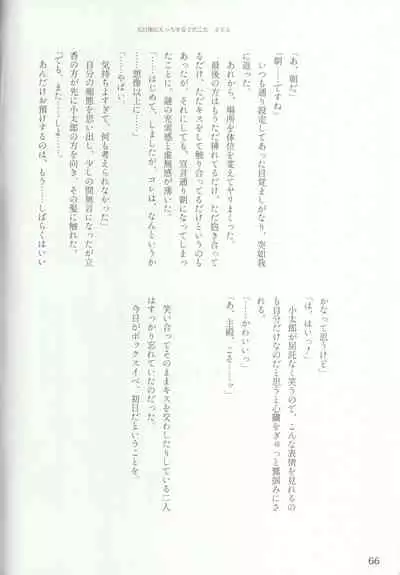 「あ、朝だ」
「朝……ですね」
いつも通り設定してあった目覚ましがなり、突如我
あれから、場所を体位を変えてヤりまくった。
最後の方はもうただ挿れてるだけ、ただ抱き合って
るだけ、ただキスをして触り合ってるだけというのも
あったが、それにしても、宣言通り朝になってしまっ
たことに、謎の充実感と虚脱感が湧いた。
「……はじめて、しましたが、コレは、なんというか
……想像以上に……」
「……やばい。
気持ちよすぎて、何も考えられなかった」
自分の痴態を思い出し、少しの間無言になったが立
香の方が先に小太郎の方を向き、その髪に触れた。
「でも、また……しょ……。
あんだけお預けするのは、もう……しばらくはいい
かなって思うけど」
「は、はいっ！」
小太郎が屈託なく笑うので、こんな表情を見れるの
も自分だけなのだと思うと心臓をぎゅっと鷲掴みにさ
れる。
「……かわいいっ」
「あ、主殿、こそ……っ」
笑い合ってそのままキスを交わしたりしている二人
はすっかり忘れていたのだった。
今日がボックスイベ、初日だということを。
66